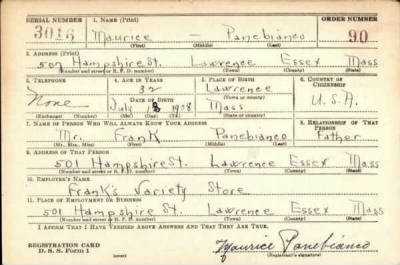 SERIAL NUMBER 1. NAME (Print) ORDER NUMBER
3016 Maurice — Panebianco 90
(First) (Middle) (Last)
2. ADDRESS (Print)
507 Hampshire St. Lawrence Essex Mass
(Number and street or R. F. D. number) (Town) (County) (State)
3. TELEPHONE 4. AGE IN YEARS 5. PLACE OF BIRTH 6. COUNTRY OF CITIZENSHIP
None 32 Lawrence U.S.A.
DATE OF BIRTH (Town or county)
July 1908 Mass
(Exchange) (Number) (Mo.) (Day) (Yr.) (State or country)
7. NAME OF PERSON WHO WILL ALWAYS KNOW YOUR ADDRESS 8. RELATIONSHIP OF THAT PERSON
Mr. Frank Panebianco Father
(Mr., Mrs., Miss) (First) (Middle) (Last)
9. ADDRESS OF THAT PERSON
501 Hampshire St. Lawrence Essex Mass
(Number and street or R. F. D. number) (Town) (County) (State)
10. EMPLOYER'S NAME
Frank's Variety Store
11. PLACE OF EMPLOYMENT OR BUSINESS
501 Hampshire St. Lawrence Essex Mass
(Number and street or R. F. D. number) (Town) (County) (State)
I AFFIRM THAT I HAVE VERIFIED ABOVE ANSWERS AND THAT THEY ARE TRUE.
REGISTRATION CARD Maurice Panebianco
D. S. S. Form 1 (Registrant's signature)